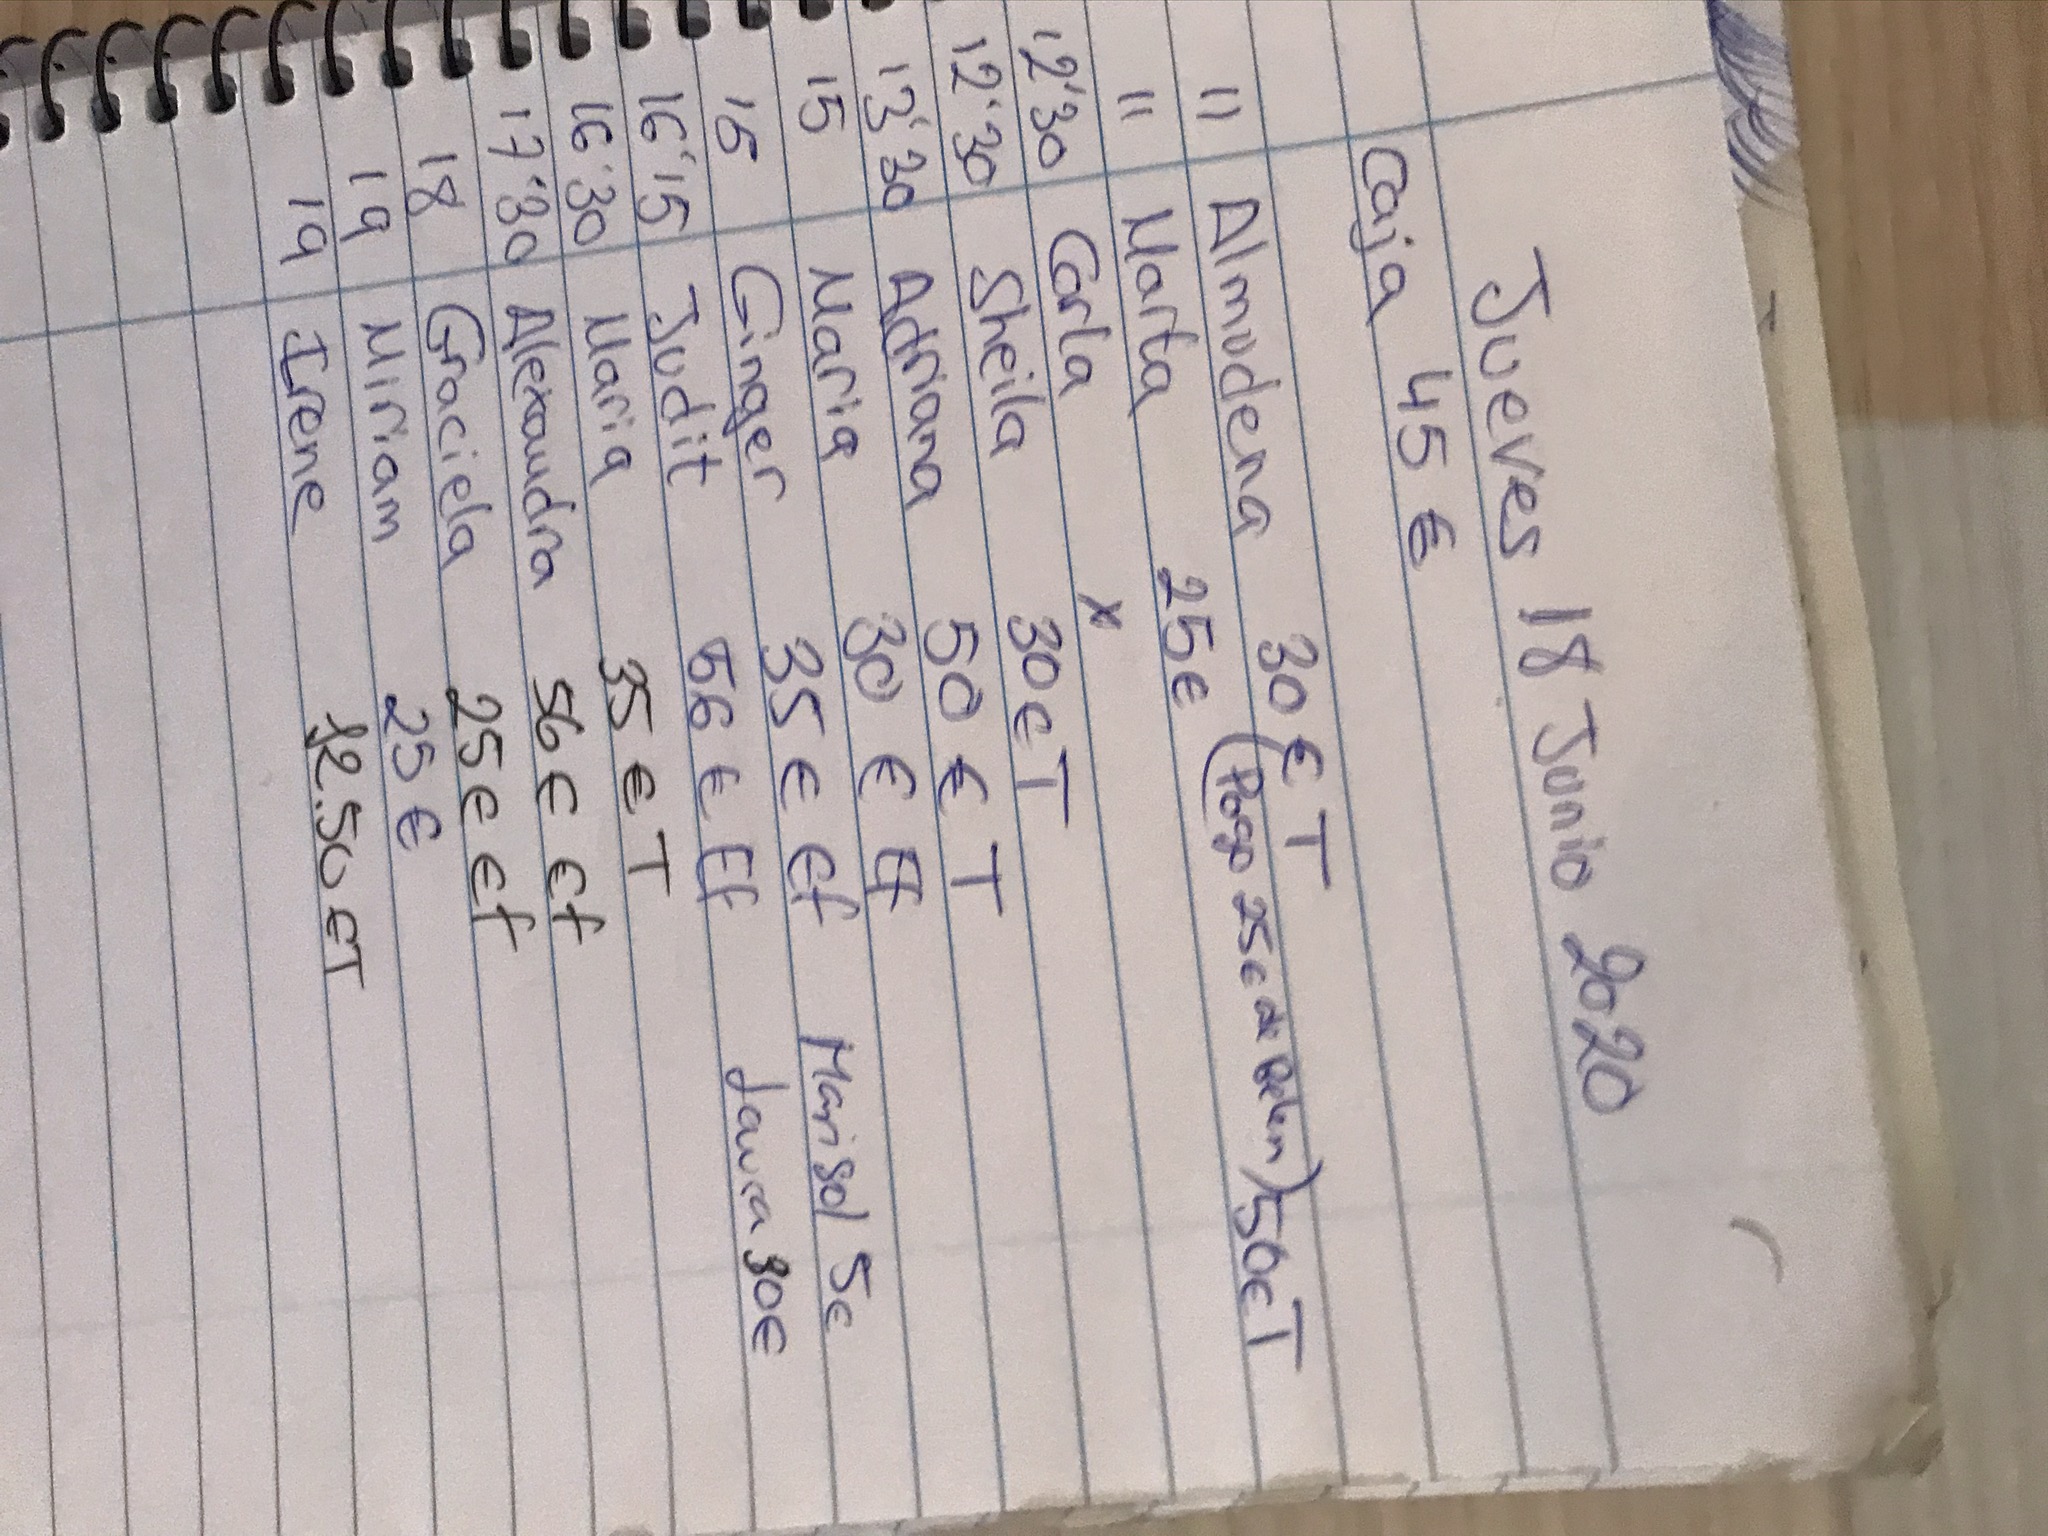 Jueves 18 Junio 2020
Caja 45 €
11 Almudena 30 € T
11 Marta 25€ (Pago 25€ de Belen) 50€T
12'30 Carla x
12'30 Sheila 30€T
13'30 Adriana 50 € T
15 Maria 30 € Ef
16 Ginger 35 € Ef Marisol 5€
16'15 Judit 56 € Ef Laura 30€
16'30 Maria 35 € T
17'30 Alexandra 56 € Ef
18 Graciela 25 € Ef
19 Miriam 25 €
19 Irene 12.50 €T